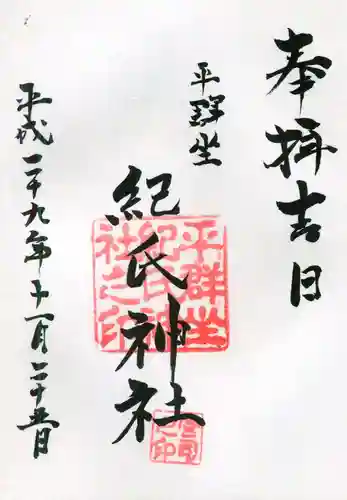 奉拝吉日
平群坐
紀氏神社
平成二十九年十一月二十五日
平群坐
紀氏神
社之印
宮司之印